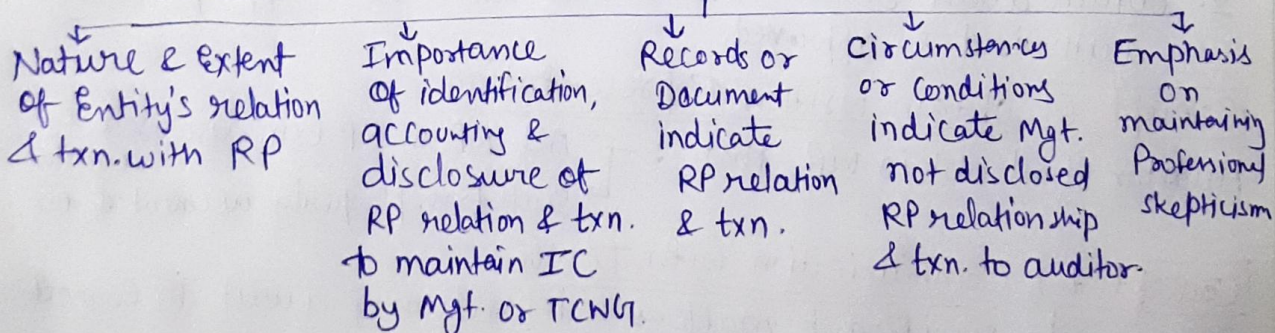 Nature & Extent
of Entity's relation
& txn. with RP
Importance
of identification,
accounting &
disclosure of
RP relation & txn.
to maintain IC
by Mgt. or TCWG.
Records or
Document
indicate
RP relation
& txn.
Circumstances
or Conditions
indicate Mgt.
not disclosed
RP relationship
& txn. to auditor.
Emphasis
on
maintaining
Professional
skepticism